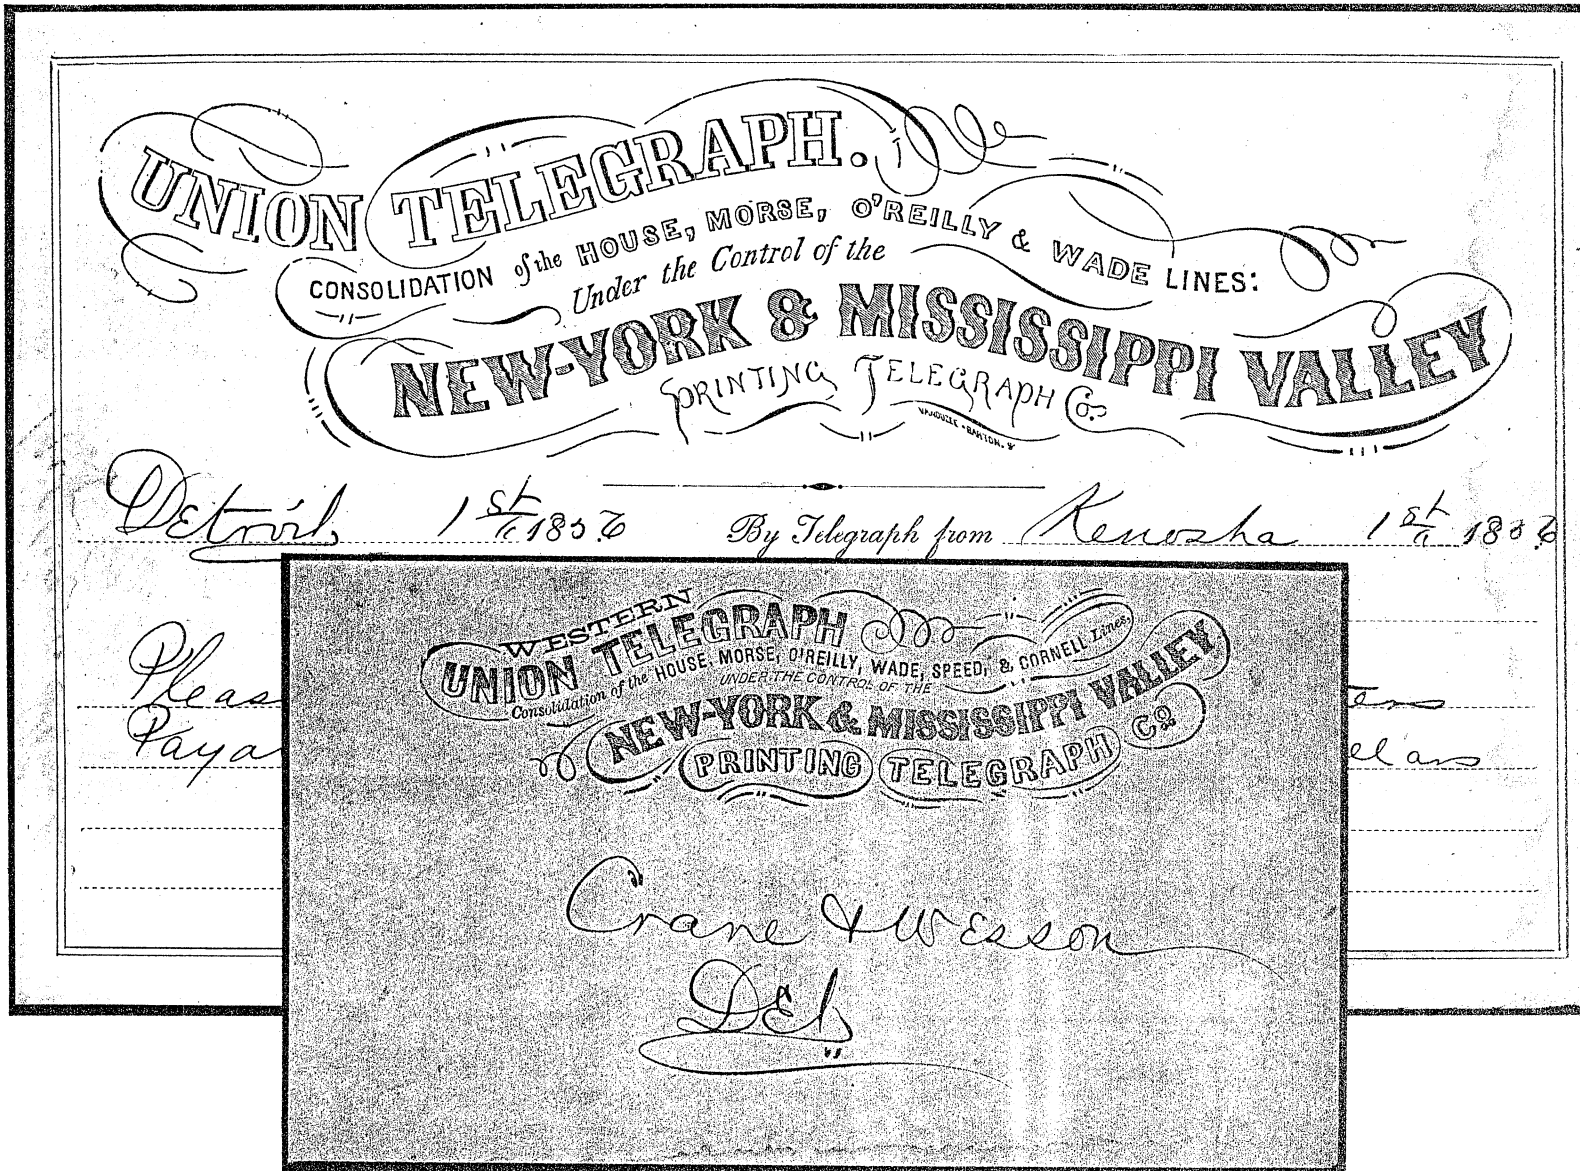 UNION TELEGRAPH.
CONSOLIDATION of the HOUSE, MORSE, O'REILLY & WADE LINES:
Under the Control of the
NEW-YORK & MISSISSIPPI VALLEY
PRINTING TELEGRAPH Co.
Detroit 1st 1856 By Telegraph from Kenosha 1st 1856
Pleas
Paya
WESTERN
UNION TELEGRAPH
Consolidation of the HOUSE, MORSE, O'REILLY, WADE, SPEED, & CORNELL Lines,
UNDER THE CONTROL OF THE
NEW-YORK & MISSISSIPPI VALLEY
PRINTING TELEGRAPH CO
Crane & Wesson
Det